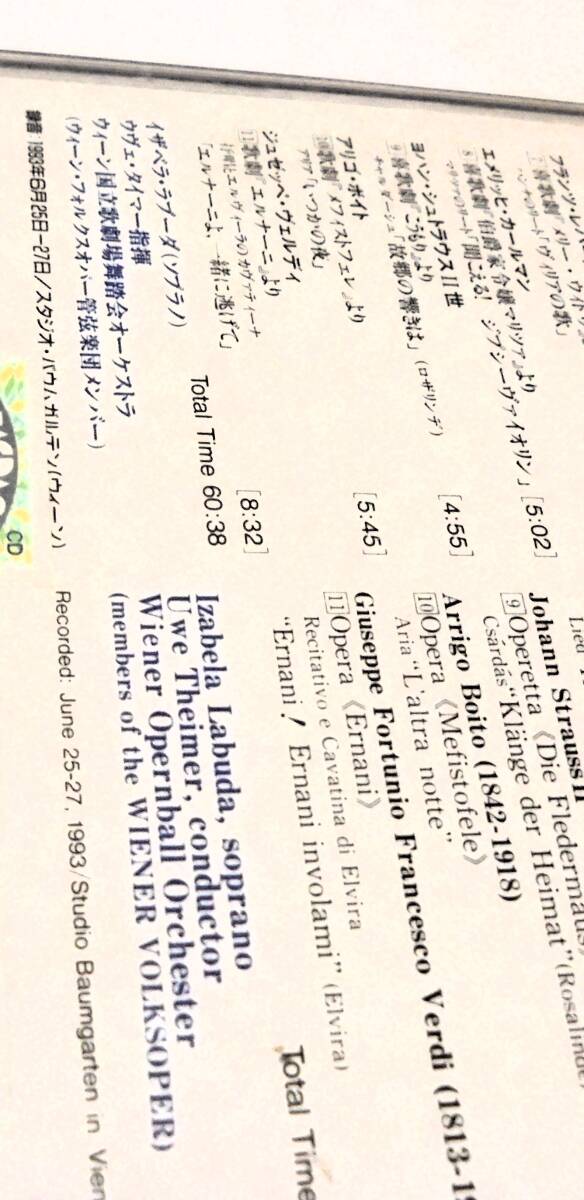 フランツ・レハール
7 喜歌劇「メリー・ウィドウ
「ヴィリアの歌」
エメリッヒ・カールマン
8 喜歌劇「伯爵家令嬢マリツァ」より
「聞こえる! ジプシーヴァイオリン」 [5:02]
ヨハン・シュトラウスII世
9 喜歌劇「こうもり」より
チャルダーシュ「故郷の響きは」(ロザリンデ) [4:55]
アリゴ・ボイト
10 歌劇「メフィストフェレ」より
アリア「いつかの夜」 [5:45]
ジュゼッペ・ヴェルディ
11 歌劇「エルナーニ」より
エルヴィーラのカヴァティーナ
「エルナーニよ、一緒に逃げて」 [8:32]
Total Time 60:38
イザベラ・ラブーダ(ソプラノ)
ウヴェ・タイマー指揮
ウィーン国立歌劇場舞踏会オーケストラ
(ウィーン・フォルクスオパー管弦楽団メンバー)
録音:1993年6月25日-27日/スタジオ・バウムガルテン(ウィーン)
CD
Johann Strauss II
9 Operetta《Die Fledermaus》
Csárdás "Klänge der Heimat" (Rosalinde)
Arrigo Boito (1842-1918)
10 Opera《Mefistofele》
Aria "L'altra notte"
Giuseppe Fortunio Francesco Verdi (1813-19
11 Opera《Ernani》
Recitativo e Cavatina di Elvira
"Ernani! Ernani involami" (Elvira)
Total Time
Izabela Labuda, soprano
Uwe Theimer, conductor
Wiener Opernball Orchester
(members of the WIENER VOLKSOPER)
Recorded: June 25-27, 1993/Studio Baumgarten in Vien